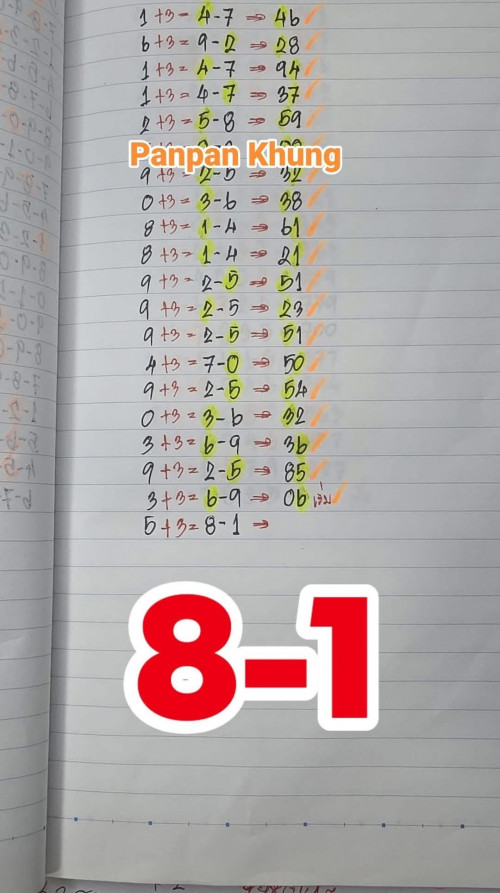 1+3= 4-7 ⇒ 46
6+3= 9-2 ⇒ 28
1+3= 4-7 ⇒ 94
1+3= 4-7 ⇒ 37
2+3= 5-8 ⇒ 59
Panpan Khung
9+3= 2-5 ⇒ 32
0+3= 3-6 ⇒ 38
8+3= 1-4 ⇒ 61
8+3= 1-4 ⇒ 21
9+3= 2-5 ⇒ 51
9+3= 2-5 ⇒ 23
9+3= 2-5 ⇒ 51
4+3= 7-0 ⇒ 50
9+3= 2-5 ⇒ 54
0+3= 3-6 ⇒ 32
3+3= 6-9 ⇒ 36
9+3= 2-5 ⇒ 85
3+3= 6-9 ⇒ 06 เริ่ม
5+3= 8-1 ⇒
8-1